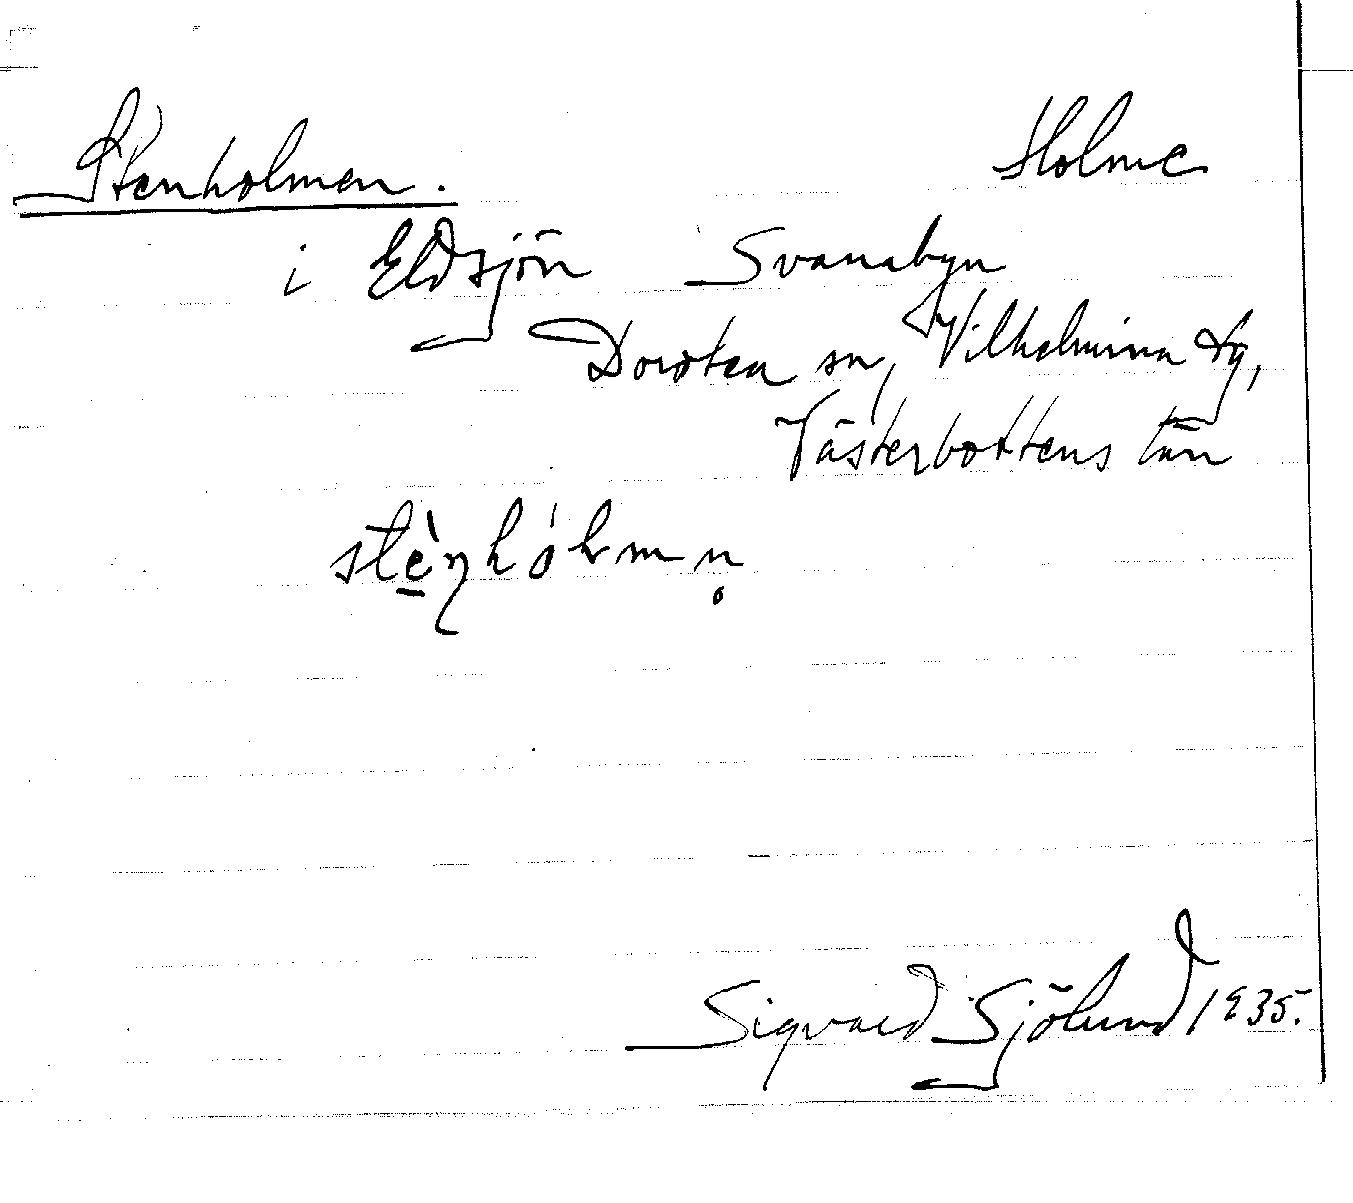 Stenholmen. Holme
i Eldsjön Svanabyn
Dorotea sn, Vilhelmina tg,
Västerbottens län
Sigvard Sjölund 1935.